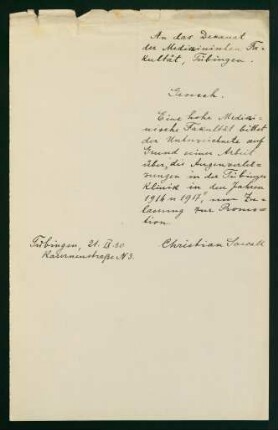 An das Dekanat
der Medizinischen Fa-
kultät, Tübingen.
Gesuch.
Eine hohe Medizi-
nische Fakultät bittet
der Unterzeichnete auf
Grund seiner Arbeit
über „die Augenverletz-
ungen in der Tübinger
Klinik in den Jahren
1916 u 1917", um Zu-
lassung zur Promo-
tion.
Tübingen, 21. II 20.
Kasernenstraße N 3.
Christian